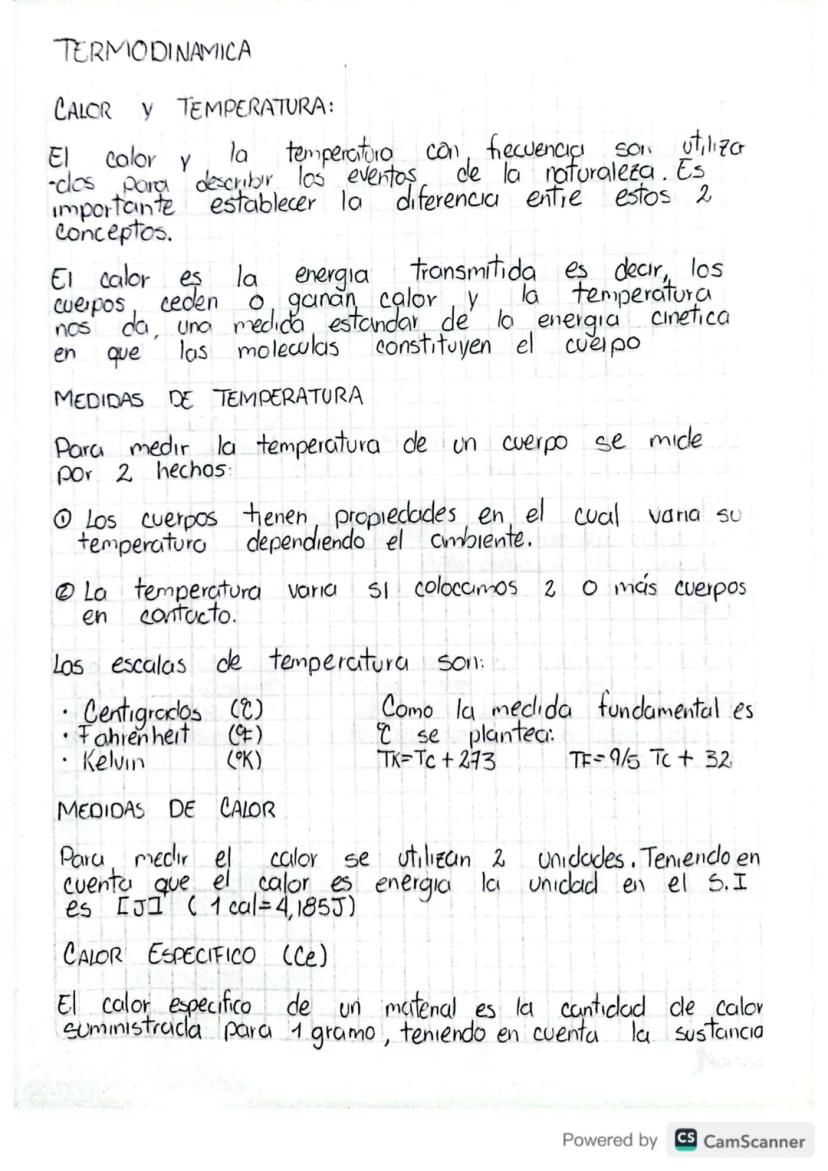 TERMODINAMICA
CALOR Y TEMPERATURA:
El calor y la temperatura con frecuencia son utiliza
-dos para describir los eventos de la naturaleza. Es
importante establecer la diferencia entre estos 2
conceptos.
El calor es la energia transmitida es decir, los
cuerpos ceden o ganan calor y la temperatura
nos da, una medida estandar de la energia cinetica
en que las moleculas constituyen el cuerpo
MEDIDAS DE TEMPERATURA
Para medir la temperatura de un cuerpo se mide
por 2 hechos:
① Los cuerpos tienen propiedades en el cual varia su
temperatura dependiendo el ambiente.
② La temperatura varia si colocamos 2 o más cuerpos
en contacto.
Las escalas de temperatura son:
• Centigrados (°C) Como la medida fundamental es
• Fahrenheit (°F) °C se plantea:
• Kelvin (°K) TK=Tc + 273 TF=9/5 Tc + 32
MEDIDAS DE CALOR
Para medir el calor se utilizan 2 unidades. Teniendo en
cuenta que el calor es energia la unidad en el S.I
es [J] (1 cal=4,185J)
CALOR ESPECIFICO (Ce)
El calor especifico de un material es la cantidad de calor
suministrada para 1 gramo, teniendo en cuenta la sustancia
Powered by CS CamScanner